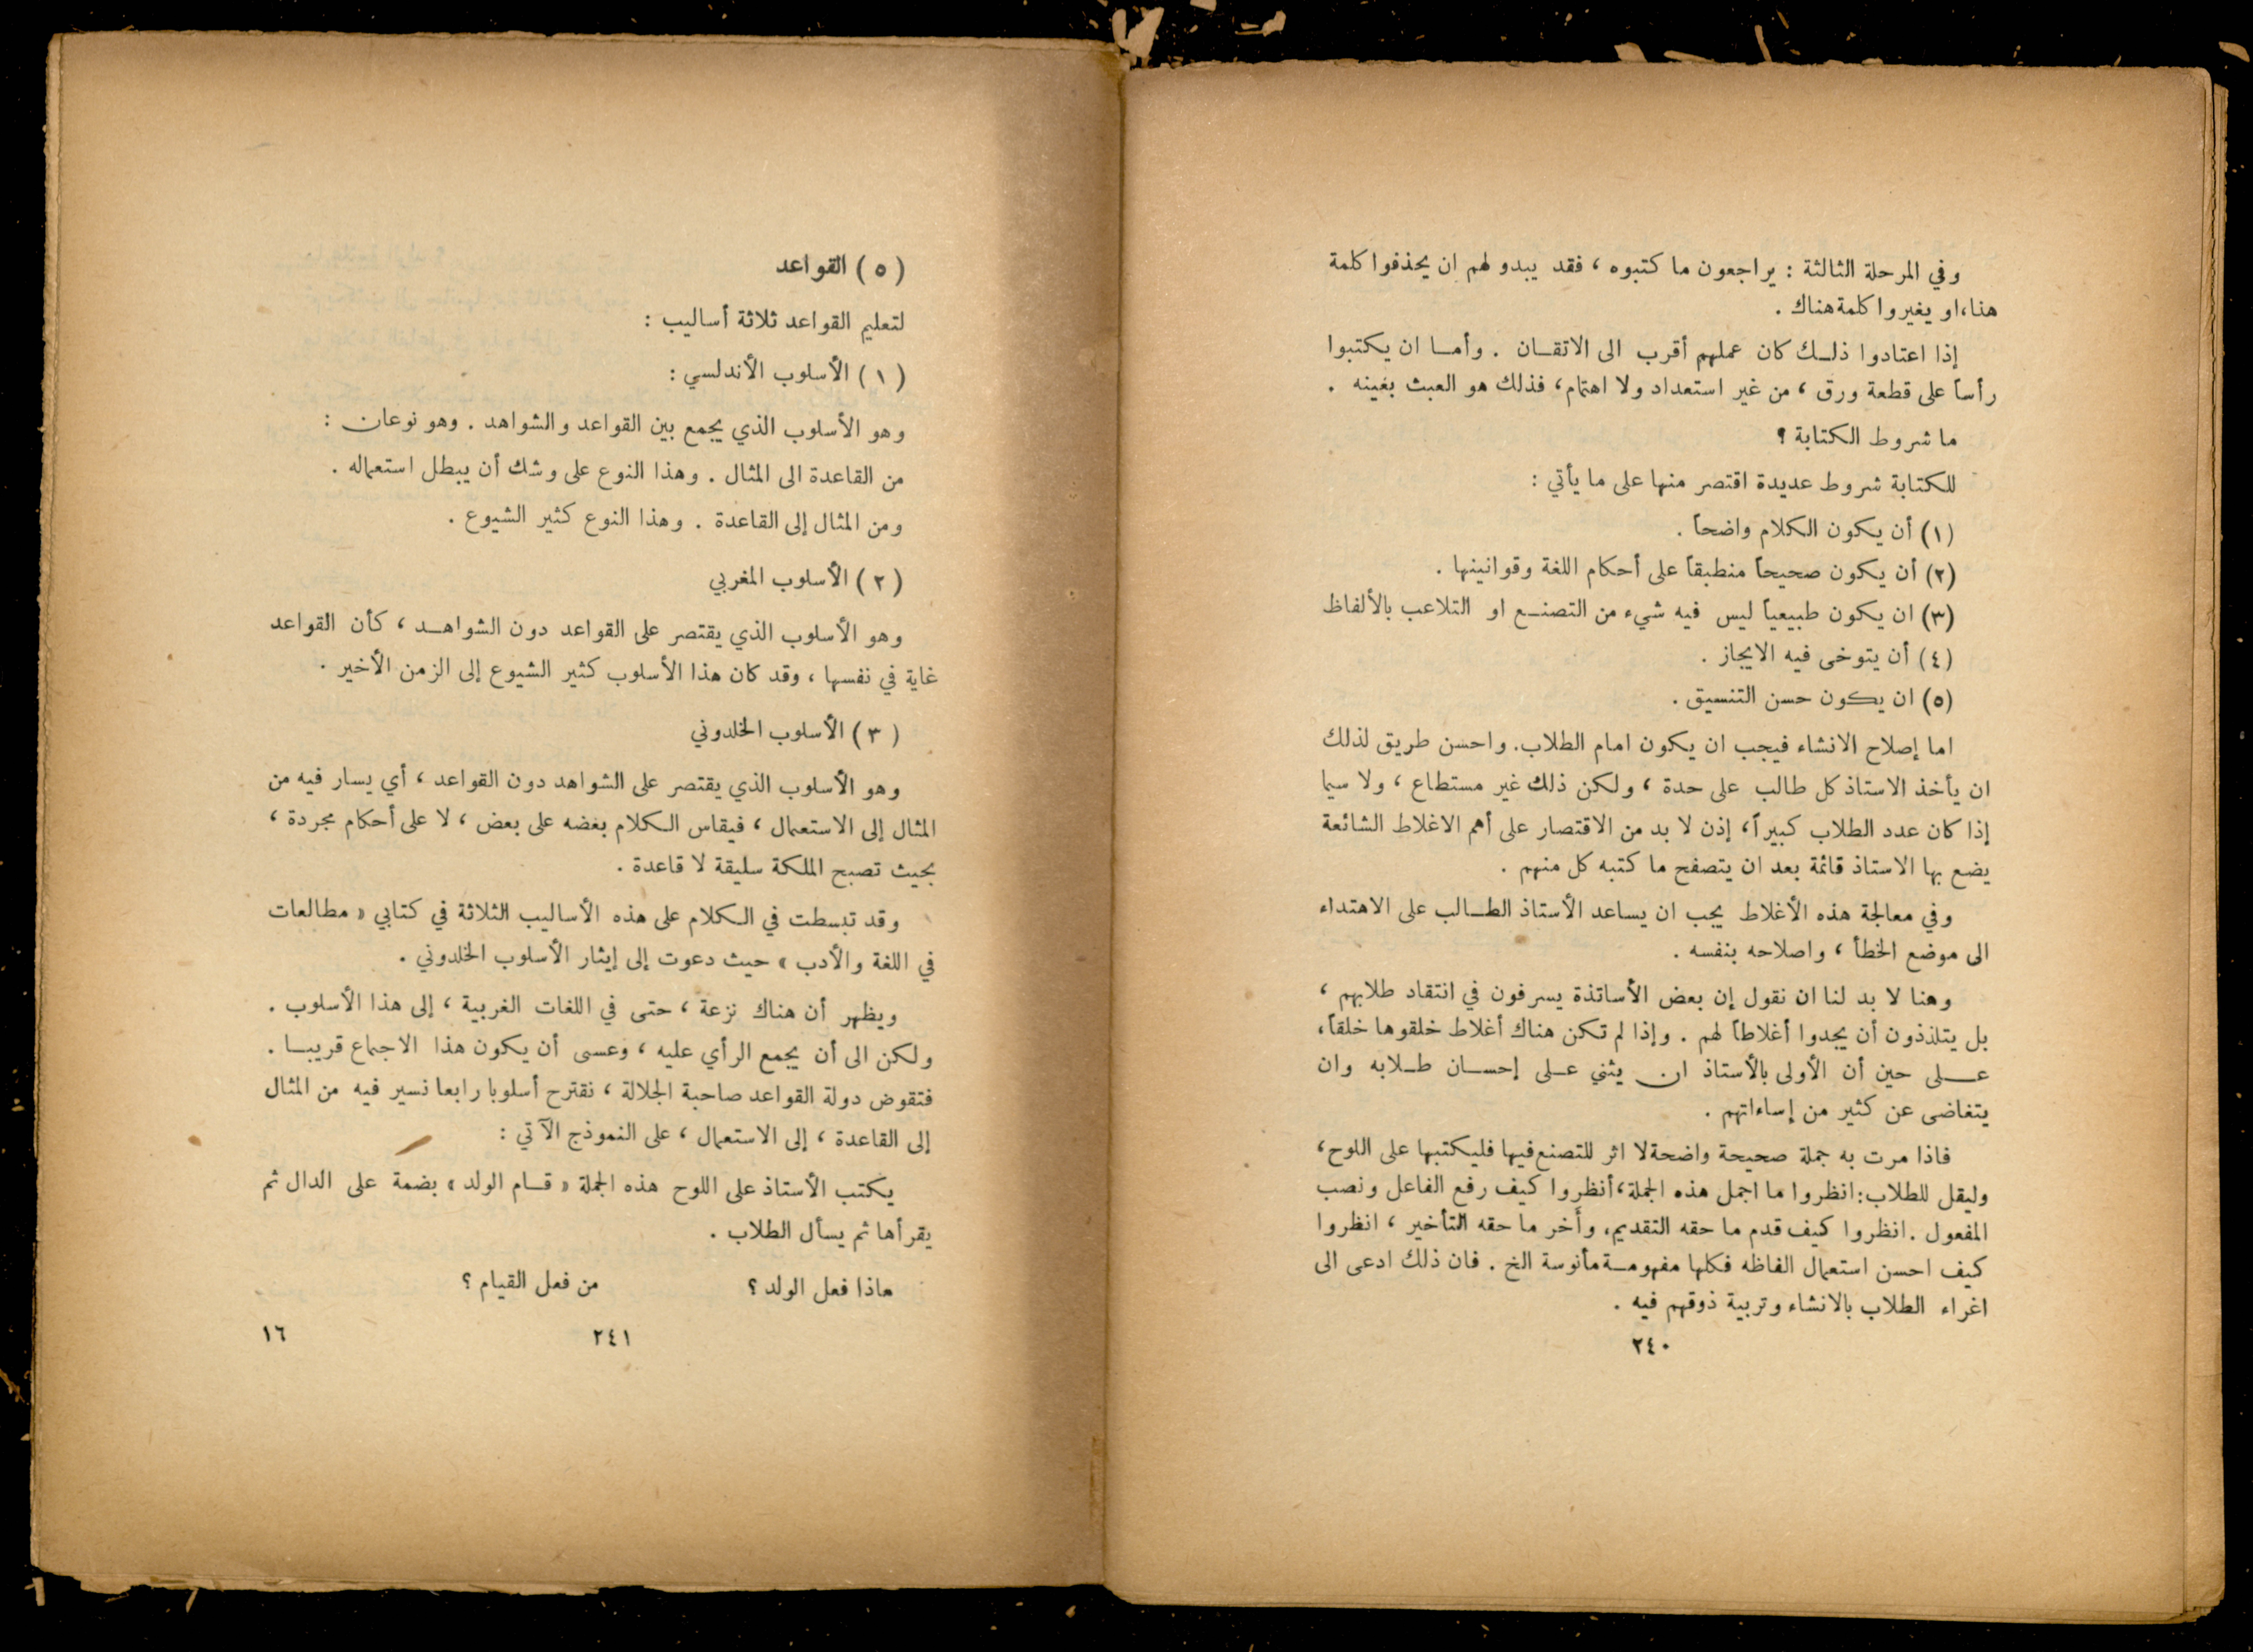 وفي المرحلة الثالثة : يراجعون ما كتبوه ، فقد يبدو لهم ان يحذفوا كلمة
هنا،او يغيروا كلمة هناك .
إذا اعتادوا ذلك كان عملهم أقرب الى الاتقان . وأما ان يكتبوا
رأساً على قطعة ورق ، من غير استعداد ولا اهتمام ، فذلك هو العبث بعينه .
ما شروط الكتابة ؟
للكتابة شروط عديدة اقتصر منها على ما يأتي :
(١) أن يكون الكلام واضحاً .
(٢) أن يكون صحيحاً منطبقاً على أحكام اللغة وقوانينها .
(٣) ان يكون طبيعياً ليس فيه شيء من التصنع او التلاعب بالألفاظ
(٤) أن يتوخى فيه الايجاز .
(٥) ان يكون حسن التنسيق .
اما إصلاح الانشاء فيجب ان يكون امام الطلاب. واحسن طريق لذلك
ان يأخذ الاستاذ كل طالب على حدة ، ولكن ذلك غير مستطاع ، ولا سيما
إذا كان عدد الطلاب كبيراً، إذن لا بد من الاقتصار على أهم الاغلاط الشائعة
يضع بها الاستاذ قائمة بعد ان يتصفح ما كتبه كل منهم .
وفي معالجة هذه الأغلاط يجب ان يساعد الأستاذ الطالب على الاهتداء
الى موضع الخطأ ، واصلاحه بنفسه .
وهنا لا بد لنا ان نقول إن بعض الأساتذة يسرفون في انتقاد طلابهم ،
بل يتلذذون أن يجدوا أغلاطاً لهم . وإذا لم تكن هناك أغلاط خلقوها خلقاً،
على حين أن الأولى بالأستاذ ان يثني على إحسان طلابه وان
يتغاضى عن كثير من إساءاتهم .
فاذا مرت به جملة صحيحة واضحة لا اثر للتصنع فيها فليكتبها على اللوح،
وليقل للطلاب: انظروا ما اجمل هذه الجملة، أنظروا كيف رفع الفاعل ونصب
المفعول . انظروا كيف قدم ما حقه التقديم، وأَخر ما حقه التأخير ، انظروا
كيف احسن استعمال الفاظه فكلها مفهومة مأنوسة الخ . فان ذلك ادعى الى
اغراء الطلاب بالانشاء وتربية ذوقهم فيه .
٢٤٠
( ٥ ) القواعد
لتعليم القواعد ثلاثة أساليب :
( ١ ) الأسلوب الأندلسي :
وهو الأسلوب الذي يجمع بين القواعد والشواهد . وهو نوعان :
من القاعدة الى المثال . وهذا النوع على وشك أن يبطل استعماله .
ومن المثال إلى القاعدة . وهذا النوع كثير الشيوع .
( ٢ ) الأسلوب المغربي
وهو الأسلوب الذي يقتصر على القواعد دون الشواهد ، كأن القواعد
غاية في نفسها ، وقد كان هذا الأسلوب كثير الشيوع إلى الزمن الأخير .
( ٣ ) الأسلوب الخلدوني
وهو الأسلوب الذي يقتصر على الشواهد دون القواعد ، أي يسار فيه من
المثال إلى الاستعمال ، فيقاس الكلام بعضه على بعض ، لا على أحكام مجردة ،
بحيث تصبح الملكة سليقة لا قاعدة .
وقد تبسطت في الكلام على هذه الأساليب الثلاثة في كتابي « مطالعات
في اللغة والأدب » حيث دعوت إلى إيثار الأسلوب الخلدوني .
ويظهر أن هناك نزعة ، حتى في اللغات الغربية ، إلى هذا الأسلوب .
ولكن الى أن يجمع الرأي عليه ، وعسى أن يكون هذا الاجماع قريبا .
فتقوض دولة القواعد صاحبة الجلالة ، نقترح أسلوبا رابعا نسير فيه من المثال
إلى القاعدة ، إلى الاستعمال ، على النموذج الآتي :
يكتب الأستاذ على اللوح هذه الجملة « قام الولد » بضمة على الدال ثم
يقرأها ثم يسأل الطلاب .
ماذا فعل الولد ؟ من فعل القيام ؟
٢٤١ ١٦